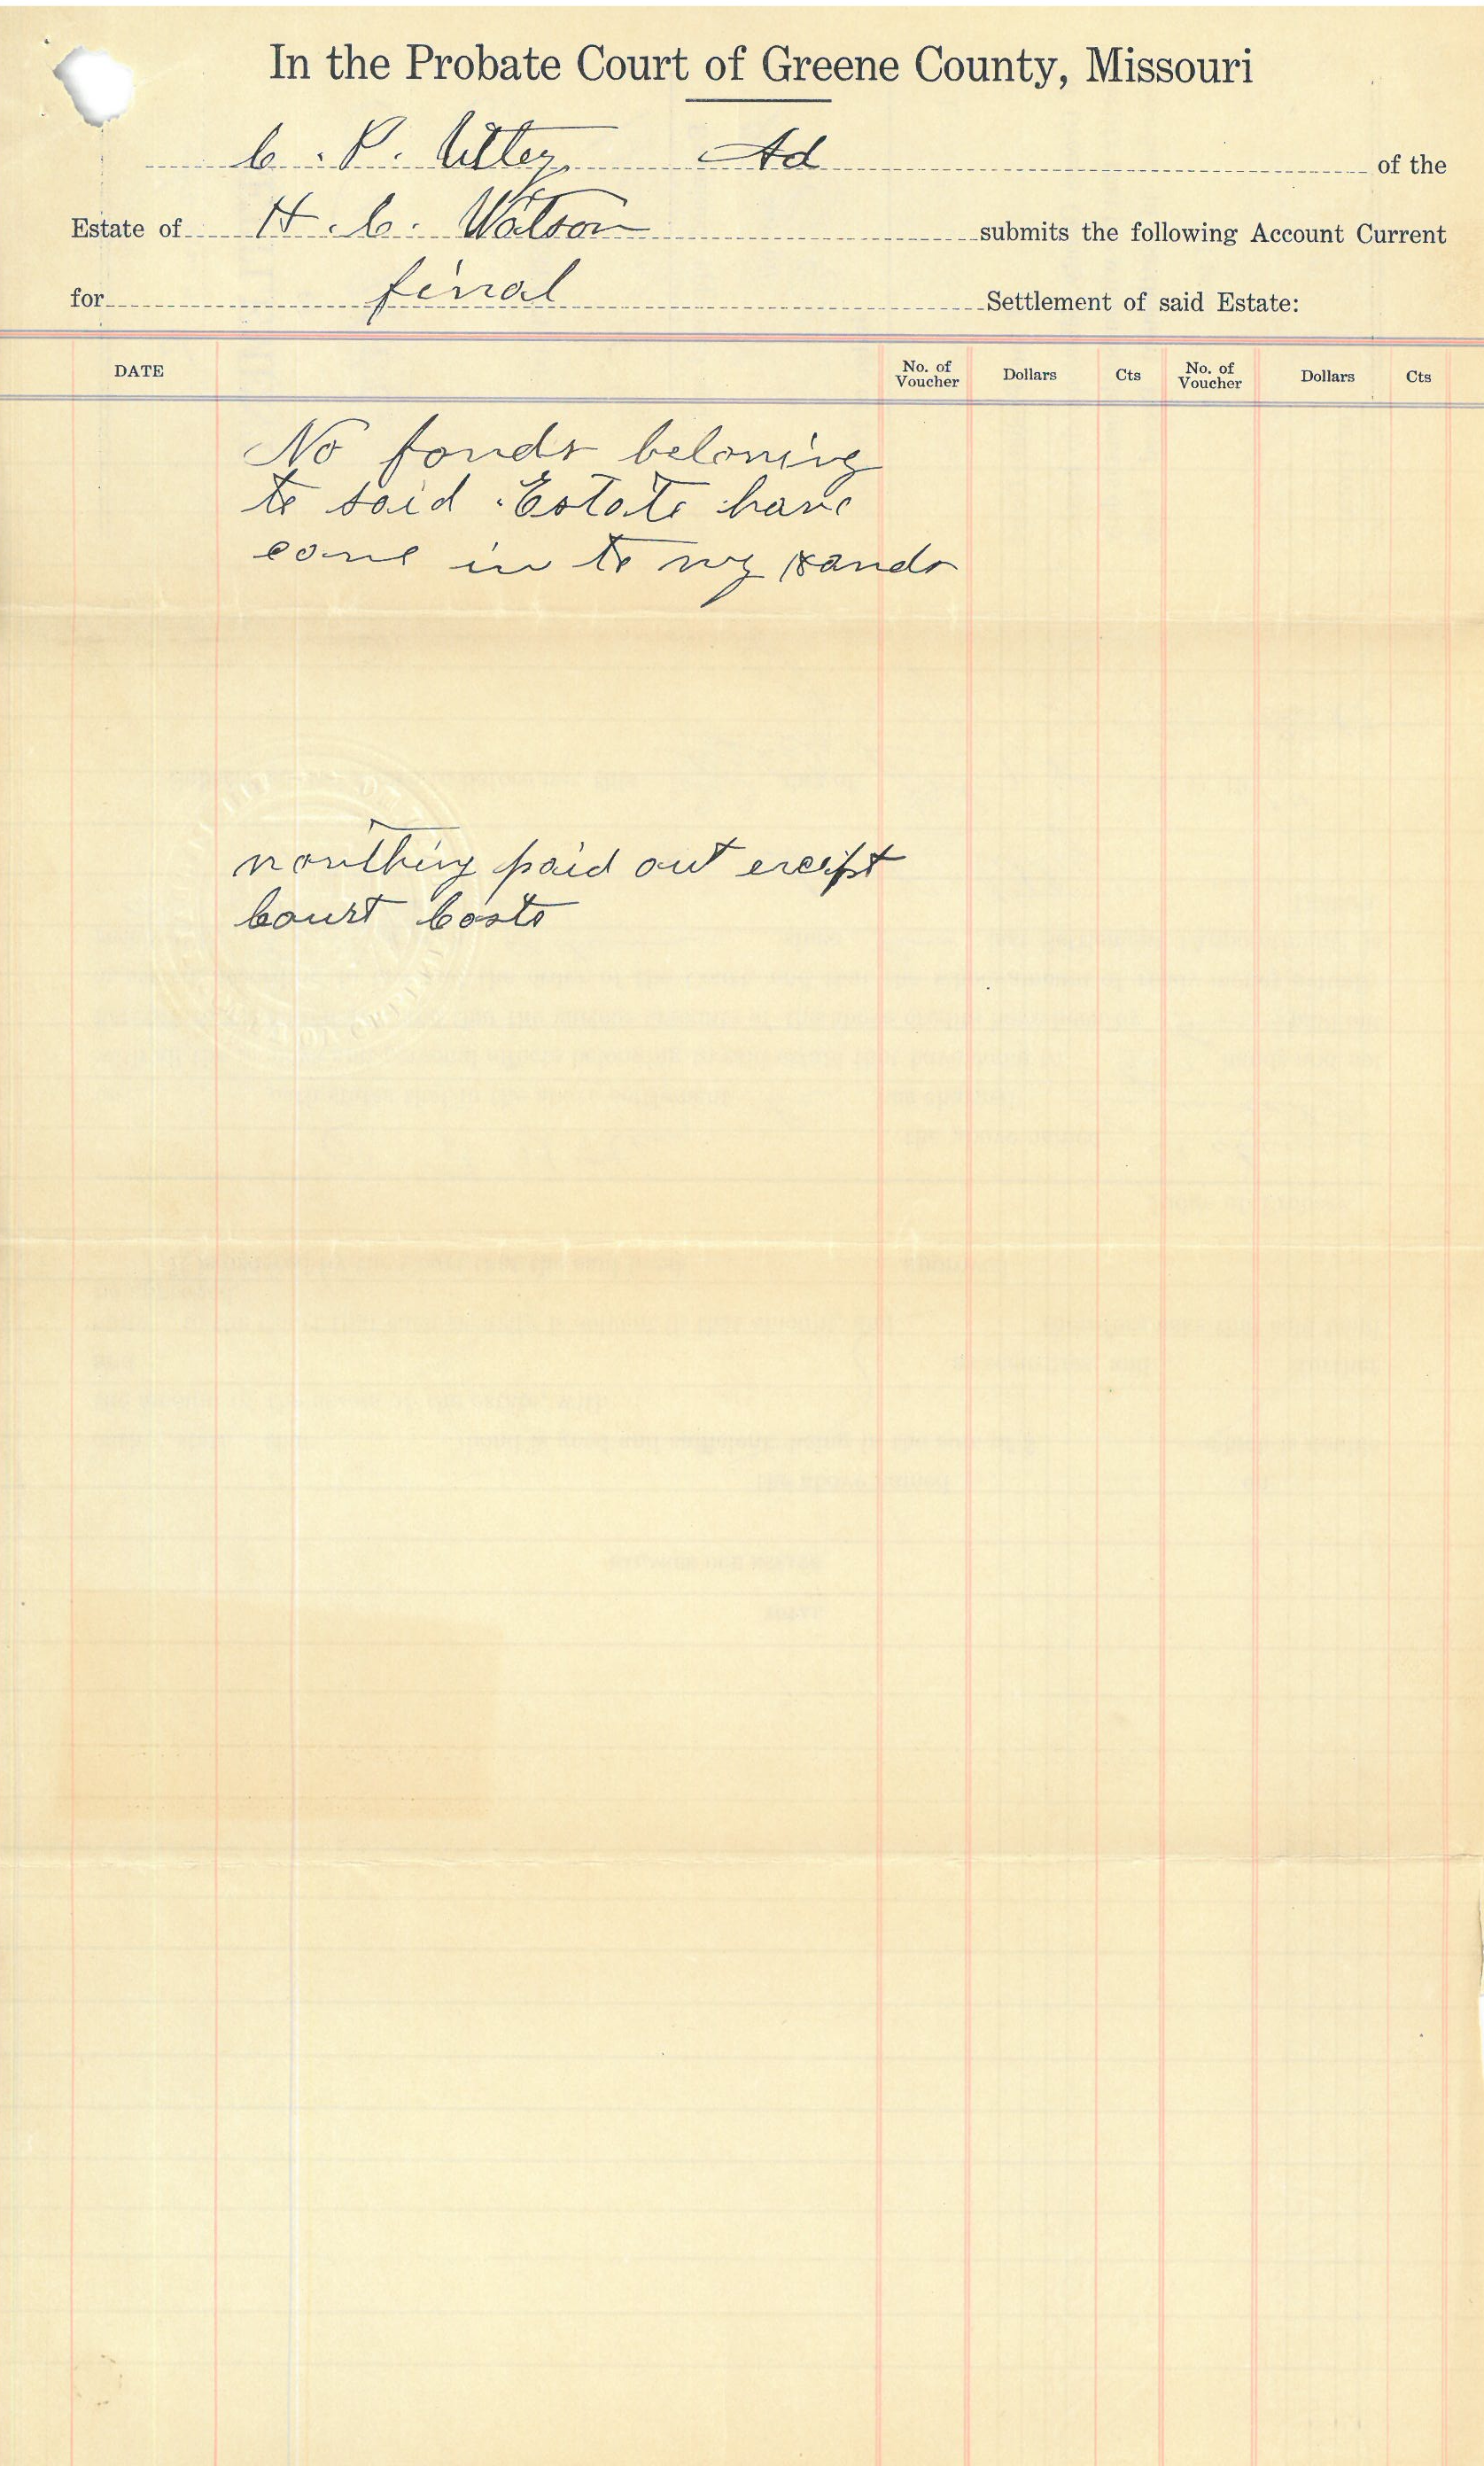 In the Probate Court of Greene County, Missouri
C. P. Utley Ad of the
Estate of H. C. Watson submits the following Account Current
for final Settlement of said Estate:
DATE No. of Voucher Dollars Cts No. of Voucher Dollars Cts
No fonds beloning
to said Estate have
come in to my hands
nouthing paid out except
Court Costs